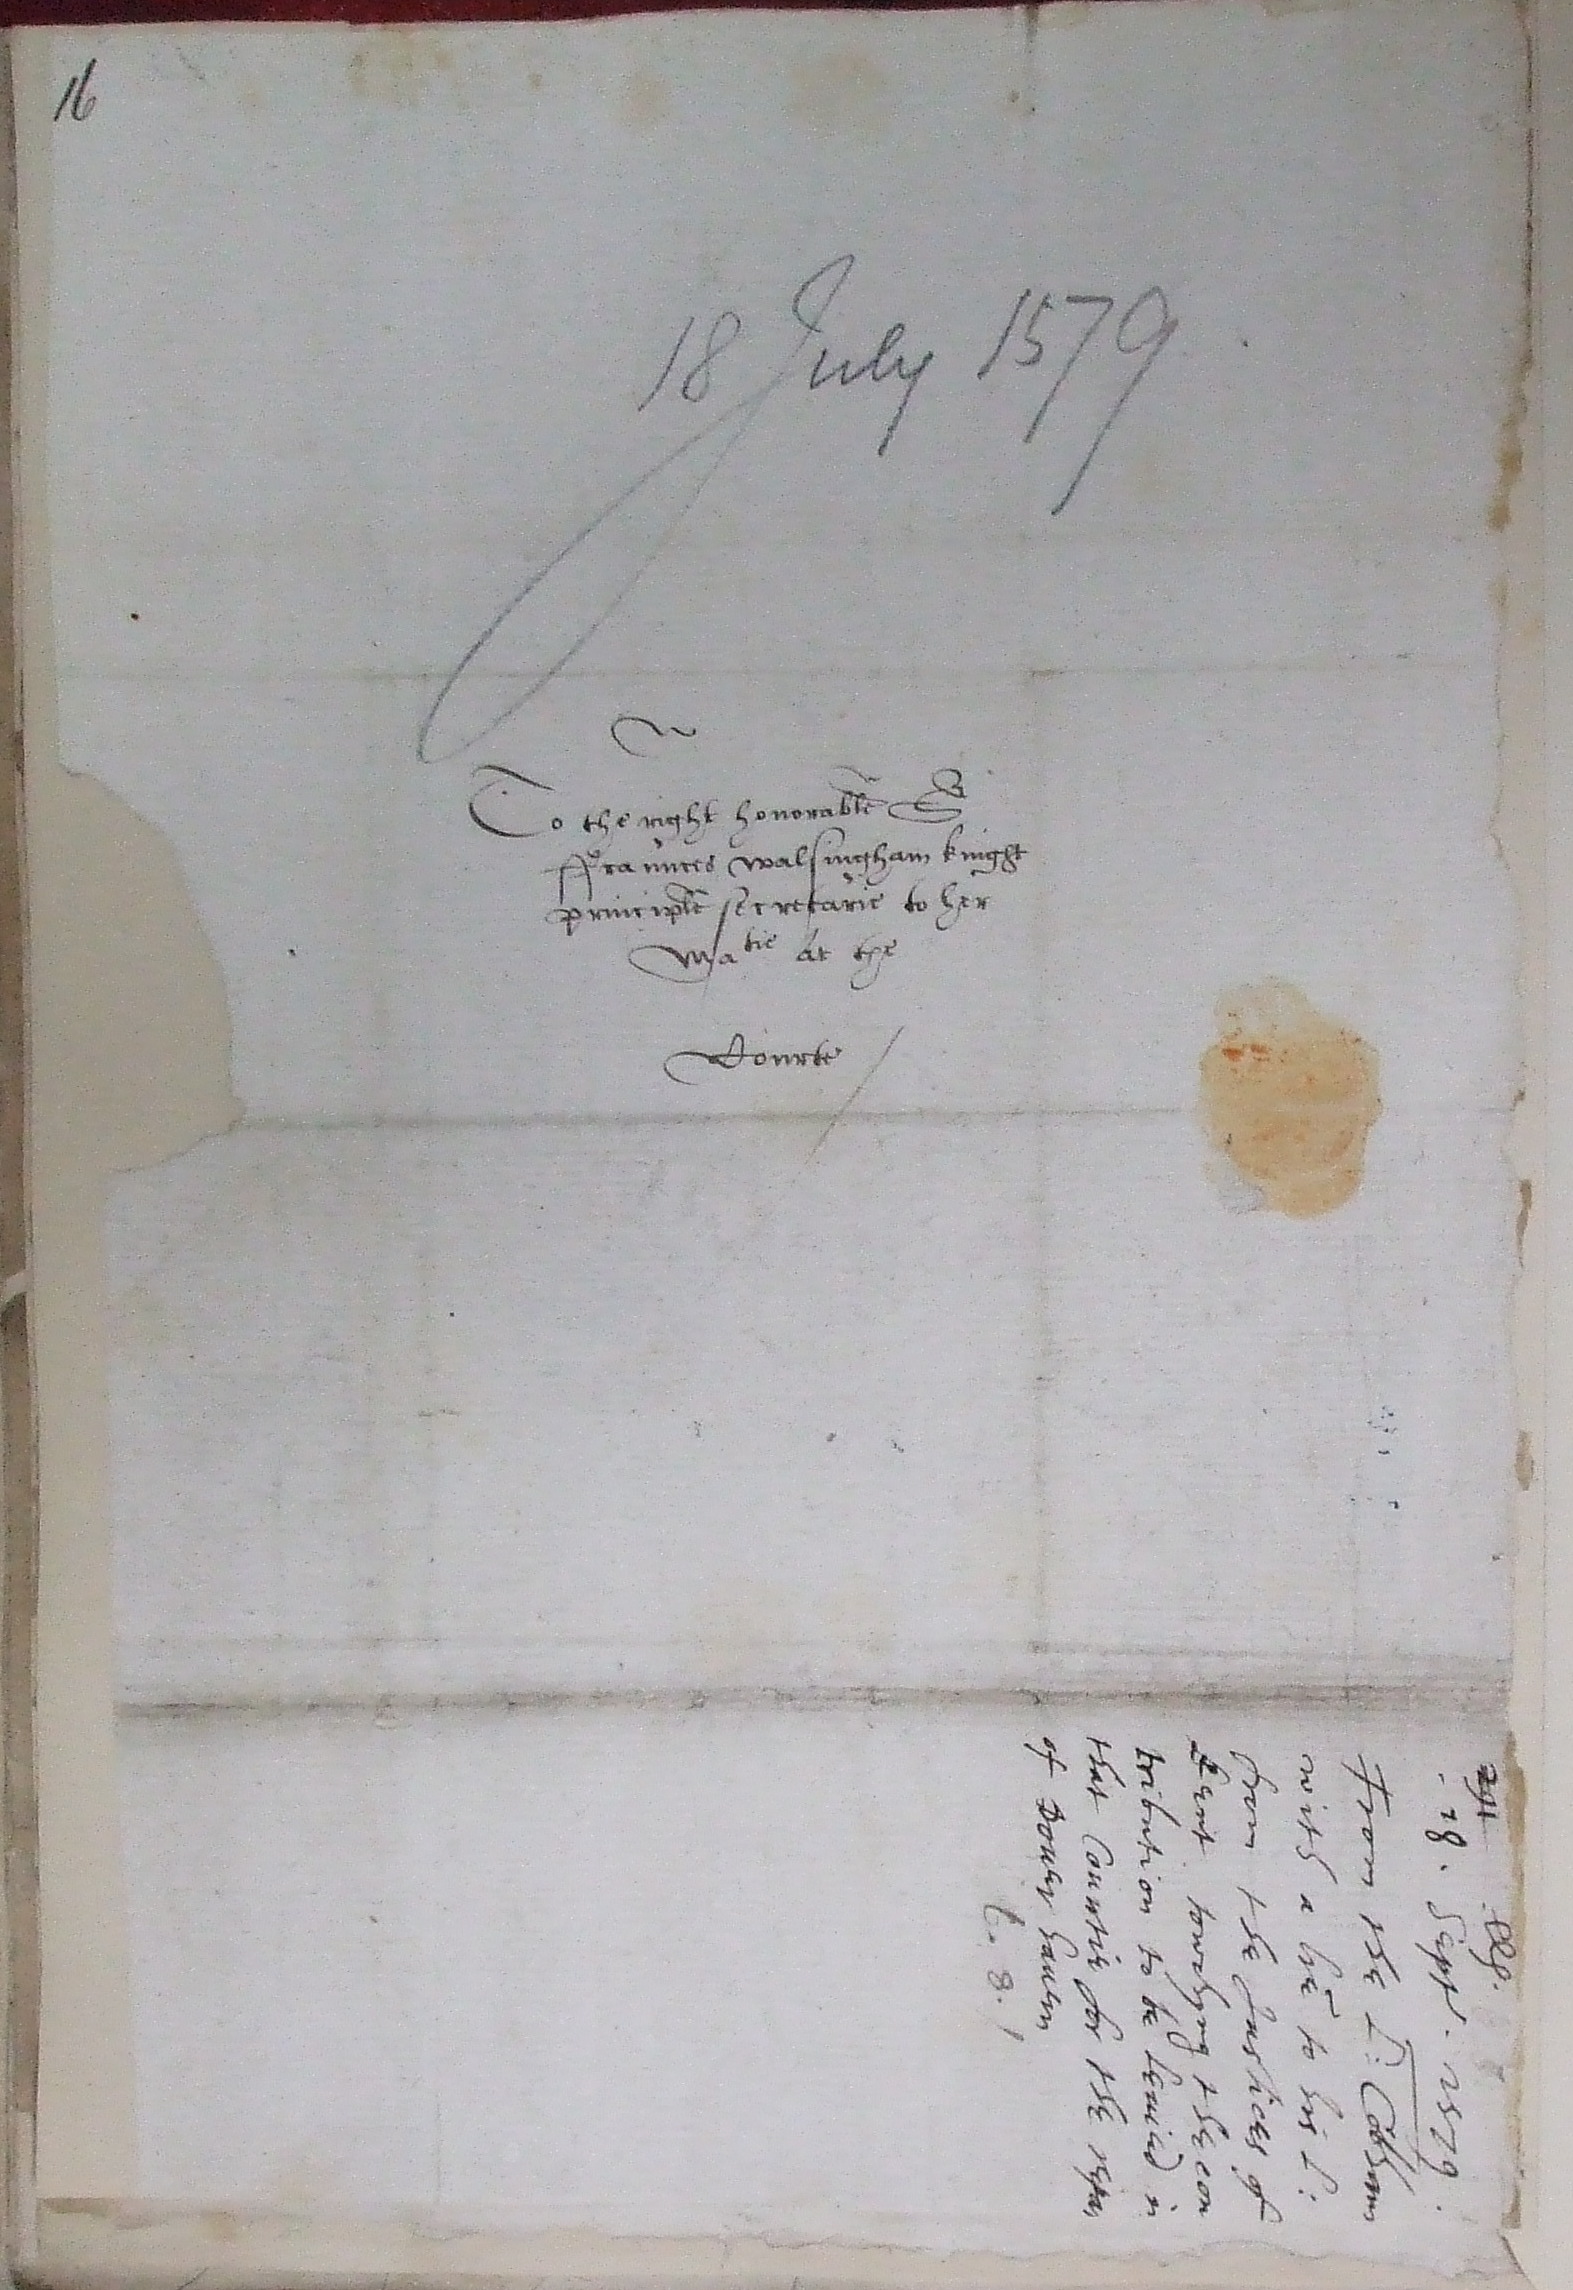 16
18 July 1579.
To the right honorable Sr
Fraunces walsingham knight
principle secretarie to her
Matie at the
Courte
. 18 . Sept. 1579 .
From the L: Cobham
with a lre to his L:
from the Justices of
Kent towching the con
tribution to be levied in
that Countie for the repa
of Dover haven